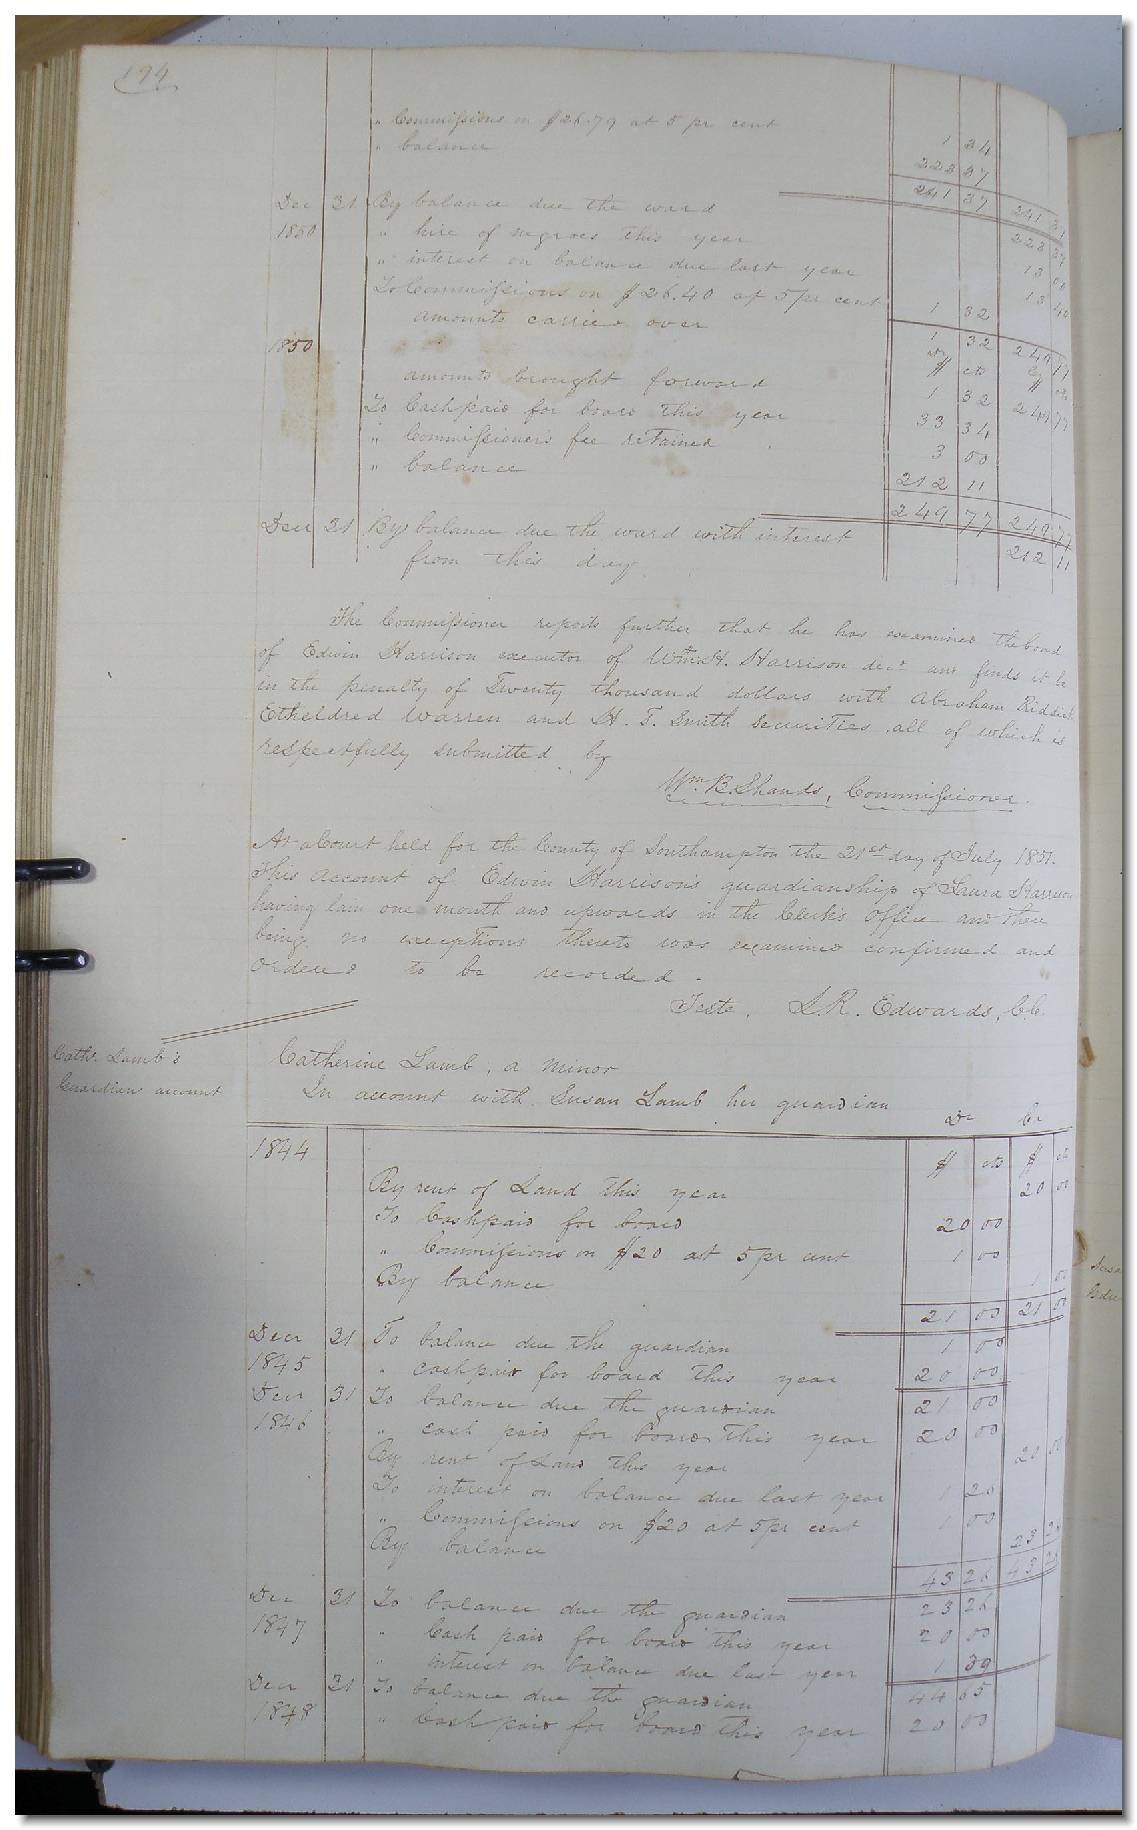 194
" Commissions on $26.79 at 5 pr cent 1 34
" balance 228 37
241 37 241 31
Dec 31 By balance due the ward 228 37
1850 " hire of negroes this year 13 00
" interest on balance due last year 13 40
To Commissions on $26.40 at 5 pr cent 1 32
amounts carried over 1 32 249 77
1850 Dr Cr
$ cts $ cts
amounts brought forward 1 32 249 77
To Cash paid for board this year 33 34
" Commissioners fee retained 3 00
" balance 212 11
249 77 249 77
Decr 31 By balance due the ward with interest 212 11
from this day
The Commissioner reports further that he has examined the bond
of Edwin Harrison executor of Wm. H. Harrison decd and finds it to be
in the penalty of Twenty thousand dollars with Abraham Riddick
Etheldred Warren and H. T. Smith Securities, all of which is
respectfully submitted by
Wm B. Shands, Commissioner.
At a Court held for the County of Southampton the 21st day of July 1851.
This Account of Edwin Harrison's guardianship of Laura Harrison
having lain one month and upwards in the Clerk's Office and there
being no exceptions thereto was examined confirmed and
ordered to be recorded.
Teste, L. R. Edwards, C.C.
Caths. Lamb's
Guardians account
Catherine Lamb, a minor
In account with Susan Lamb her guardian
Dr Cr
1844 $ cts $ cts
By rent of Land this year 20 00
To Cash paid for board 20 00
" Commissions on $20 at 5 pr cent 1 00
By balance 1 00
21 00 21 00
Decr 31 To balance due the guardian 1 00
1845 " cash paid for board this year 20 00
Decr 31 To balance due the guardian 21 00
1846 " cash paid for board this year 20 00
By rent of Land this year 20 00
To interest on balance due last year 1 26
" Commissions on $20 at 5 pr cent 1 00
By balance 23 26
43 26 43 26
Dec 31 To balance due the guardian 23 26
1847 " Cash paid for board this year 20 00
" interest on balance due last year 1 39
Decr 31 To balance due the guardian 44 65
1848 " Cash paid for board this year 20 00